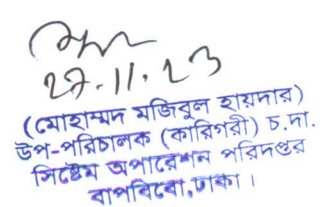 27.11.23
(মোহাম্মদ মজিবুল হায়দার)
উপ-পরিচালক (কারিগরী) চ.দা.
সিষ্টেম অপারেশন পরিদপ্তর
বাপবিবো,ঢাকা।